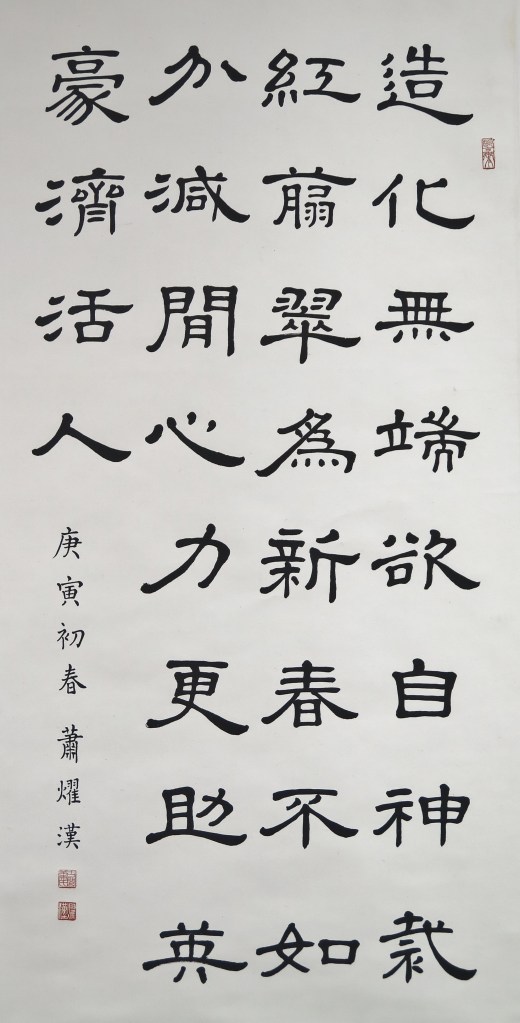 造化無端欲自神裁
紅翦翠為新春不如
分減閒心力更助英
豪濟活人
庚寅初春 蕭燿漢